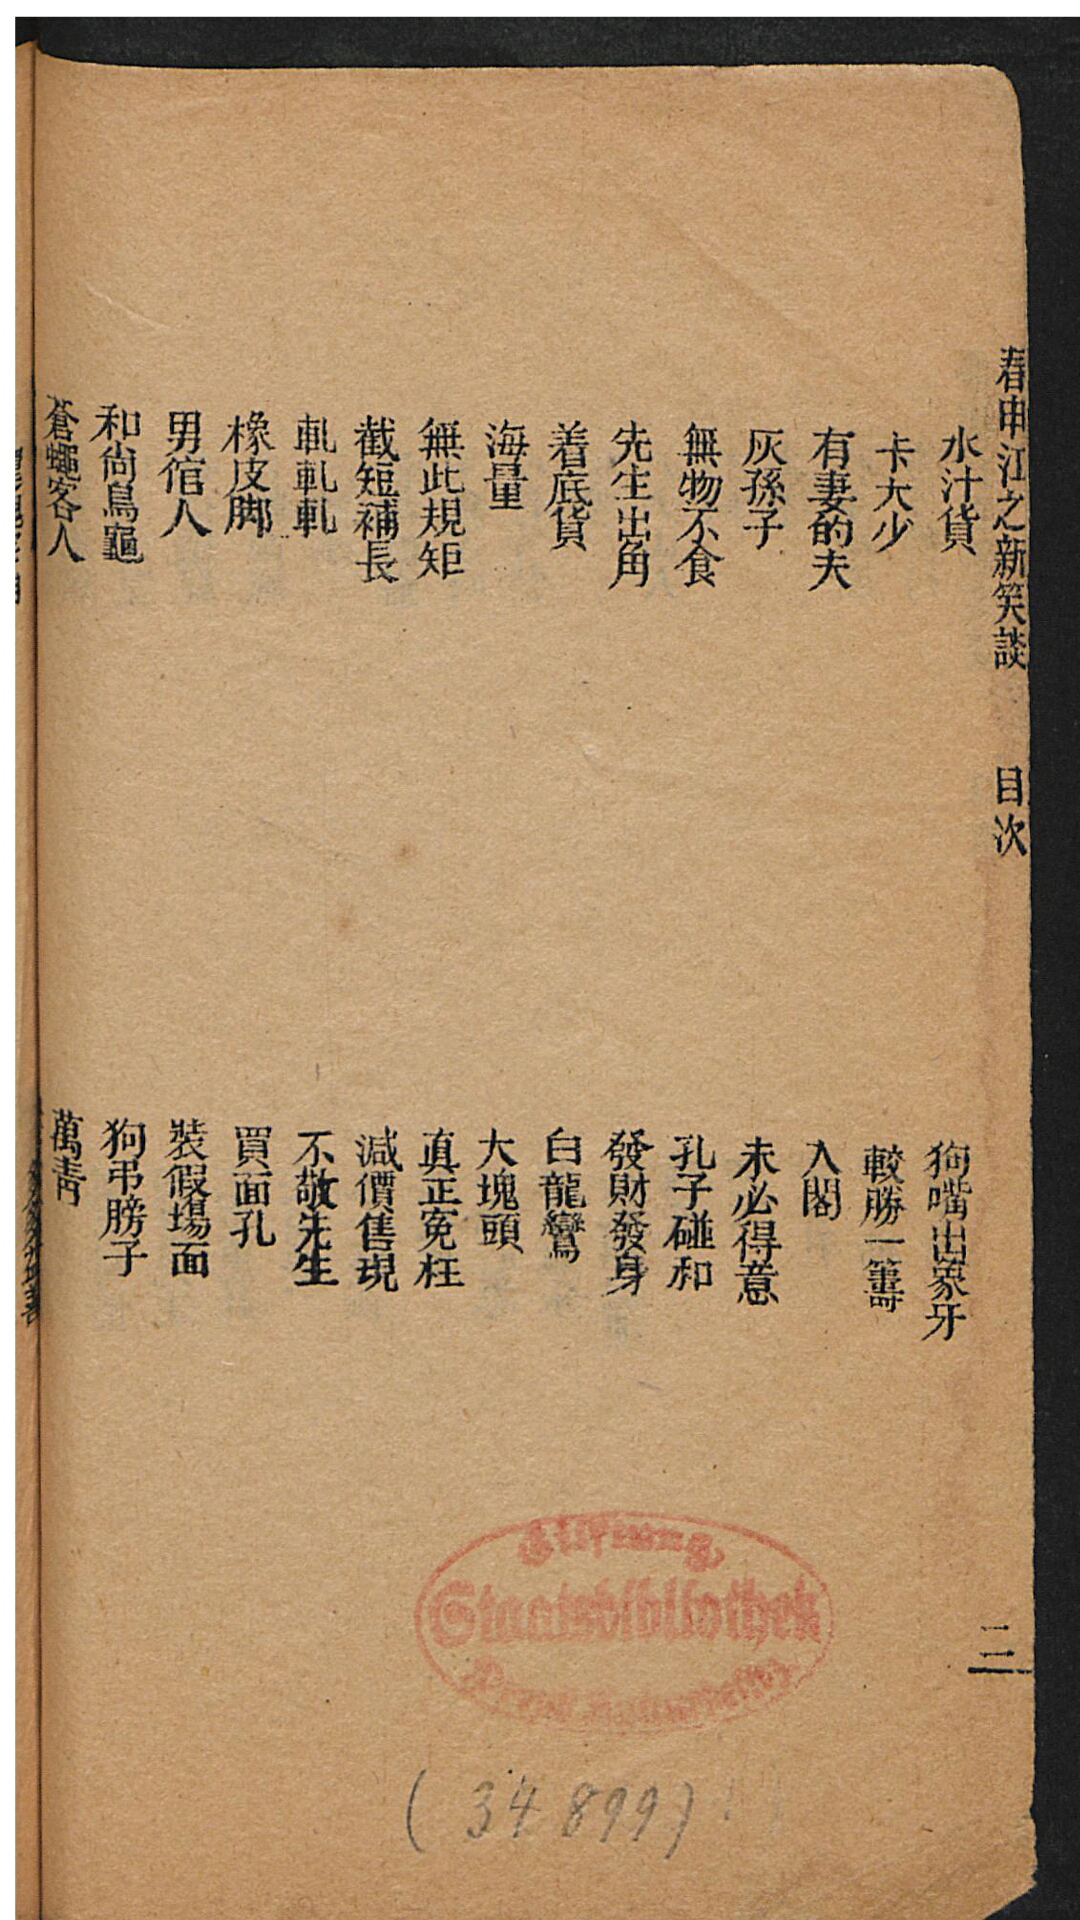 春申江之新笑談 目次
水汁貨
卡大少
有妻的夫
灰孫子
無物不食
先生出角
着底貨
海量
無此規矩
截短補長
軋軋軋
橡皮脚
男倌人
和尙烏龜
蒼蠅客人
狗嘴出象牙
較勝一籌
入閣
未必得意
孔子碰和
發財發身
白龍鸞
大塊頭
眞正寃枉
減價售現
不敬先生
買面孔
裝假場面
狗弔膀子
萬靑
二
Stiftung
Staatsbibliothek
Preuß. Kulturbesitz
(34 899)